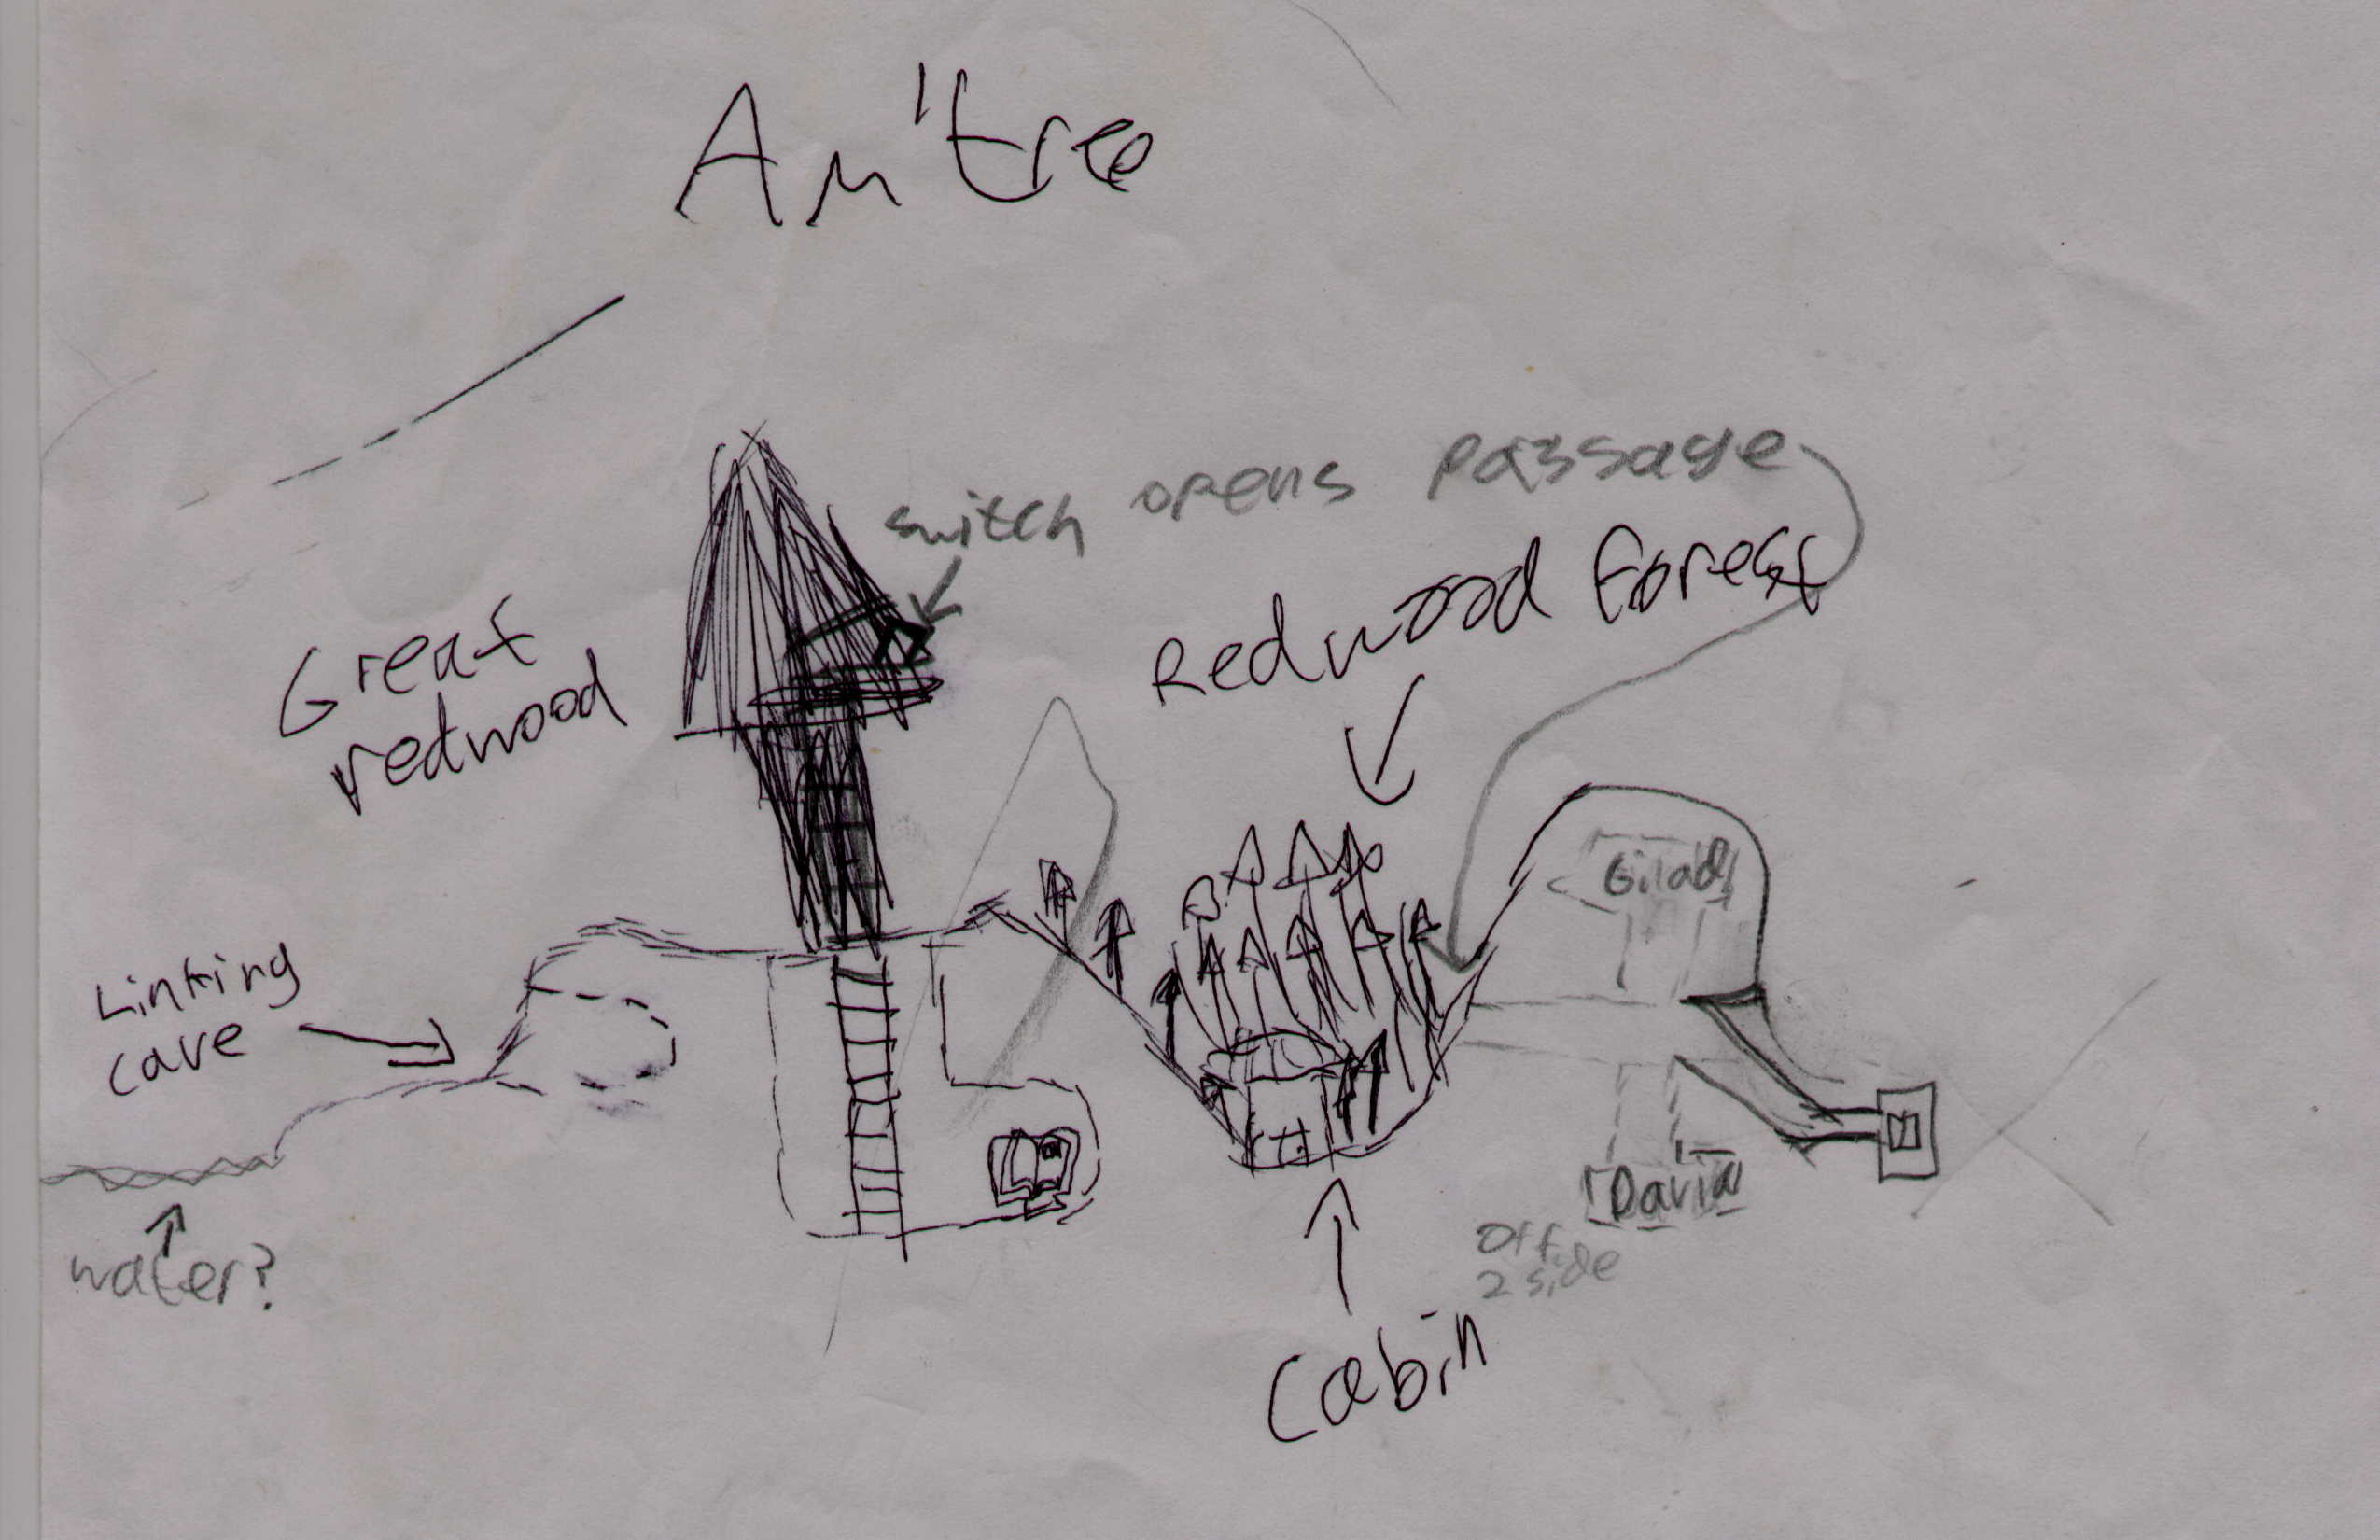 Am'tree
switch opens passage
Redwood Forest
Great
redwood
Gilad
Linking
cave
David
water?
Off
2 side
Cabin